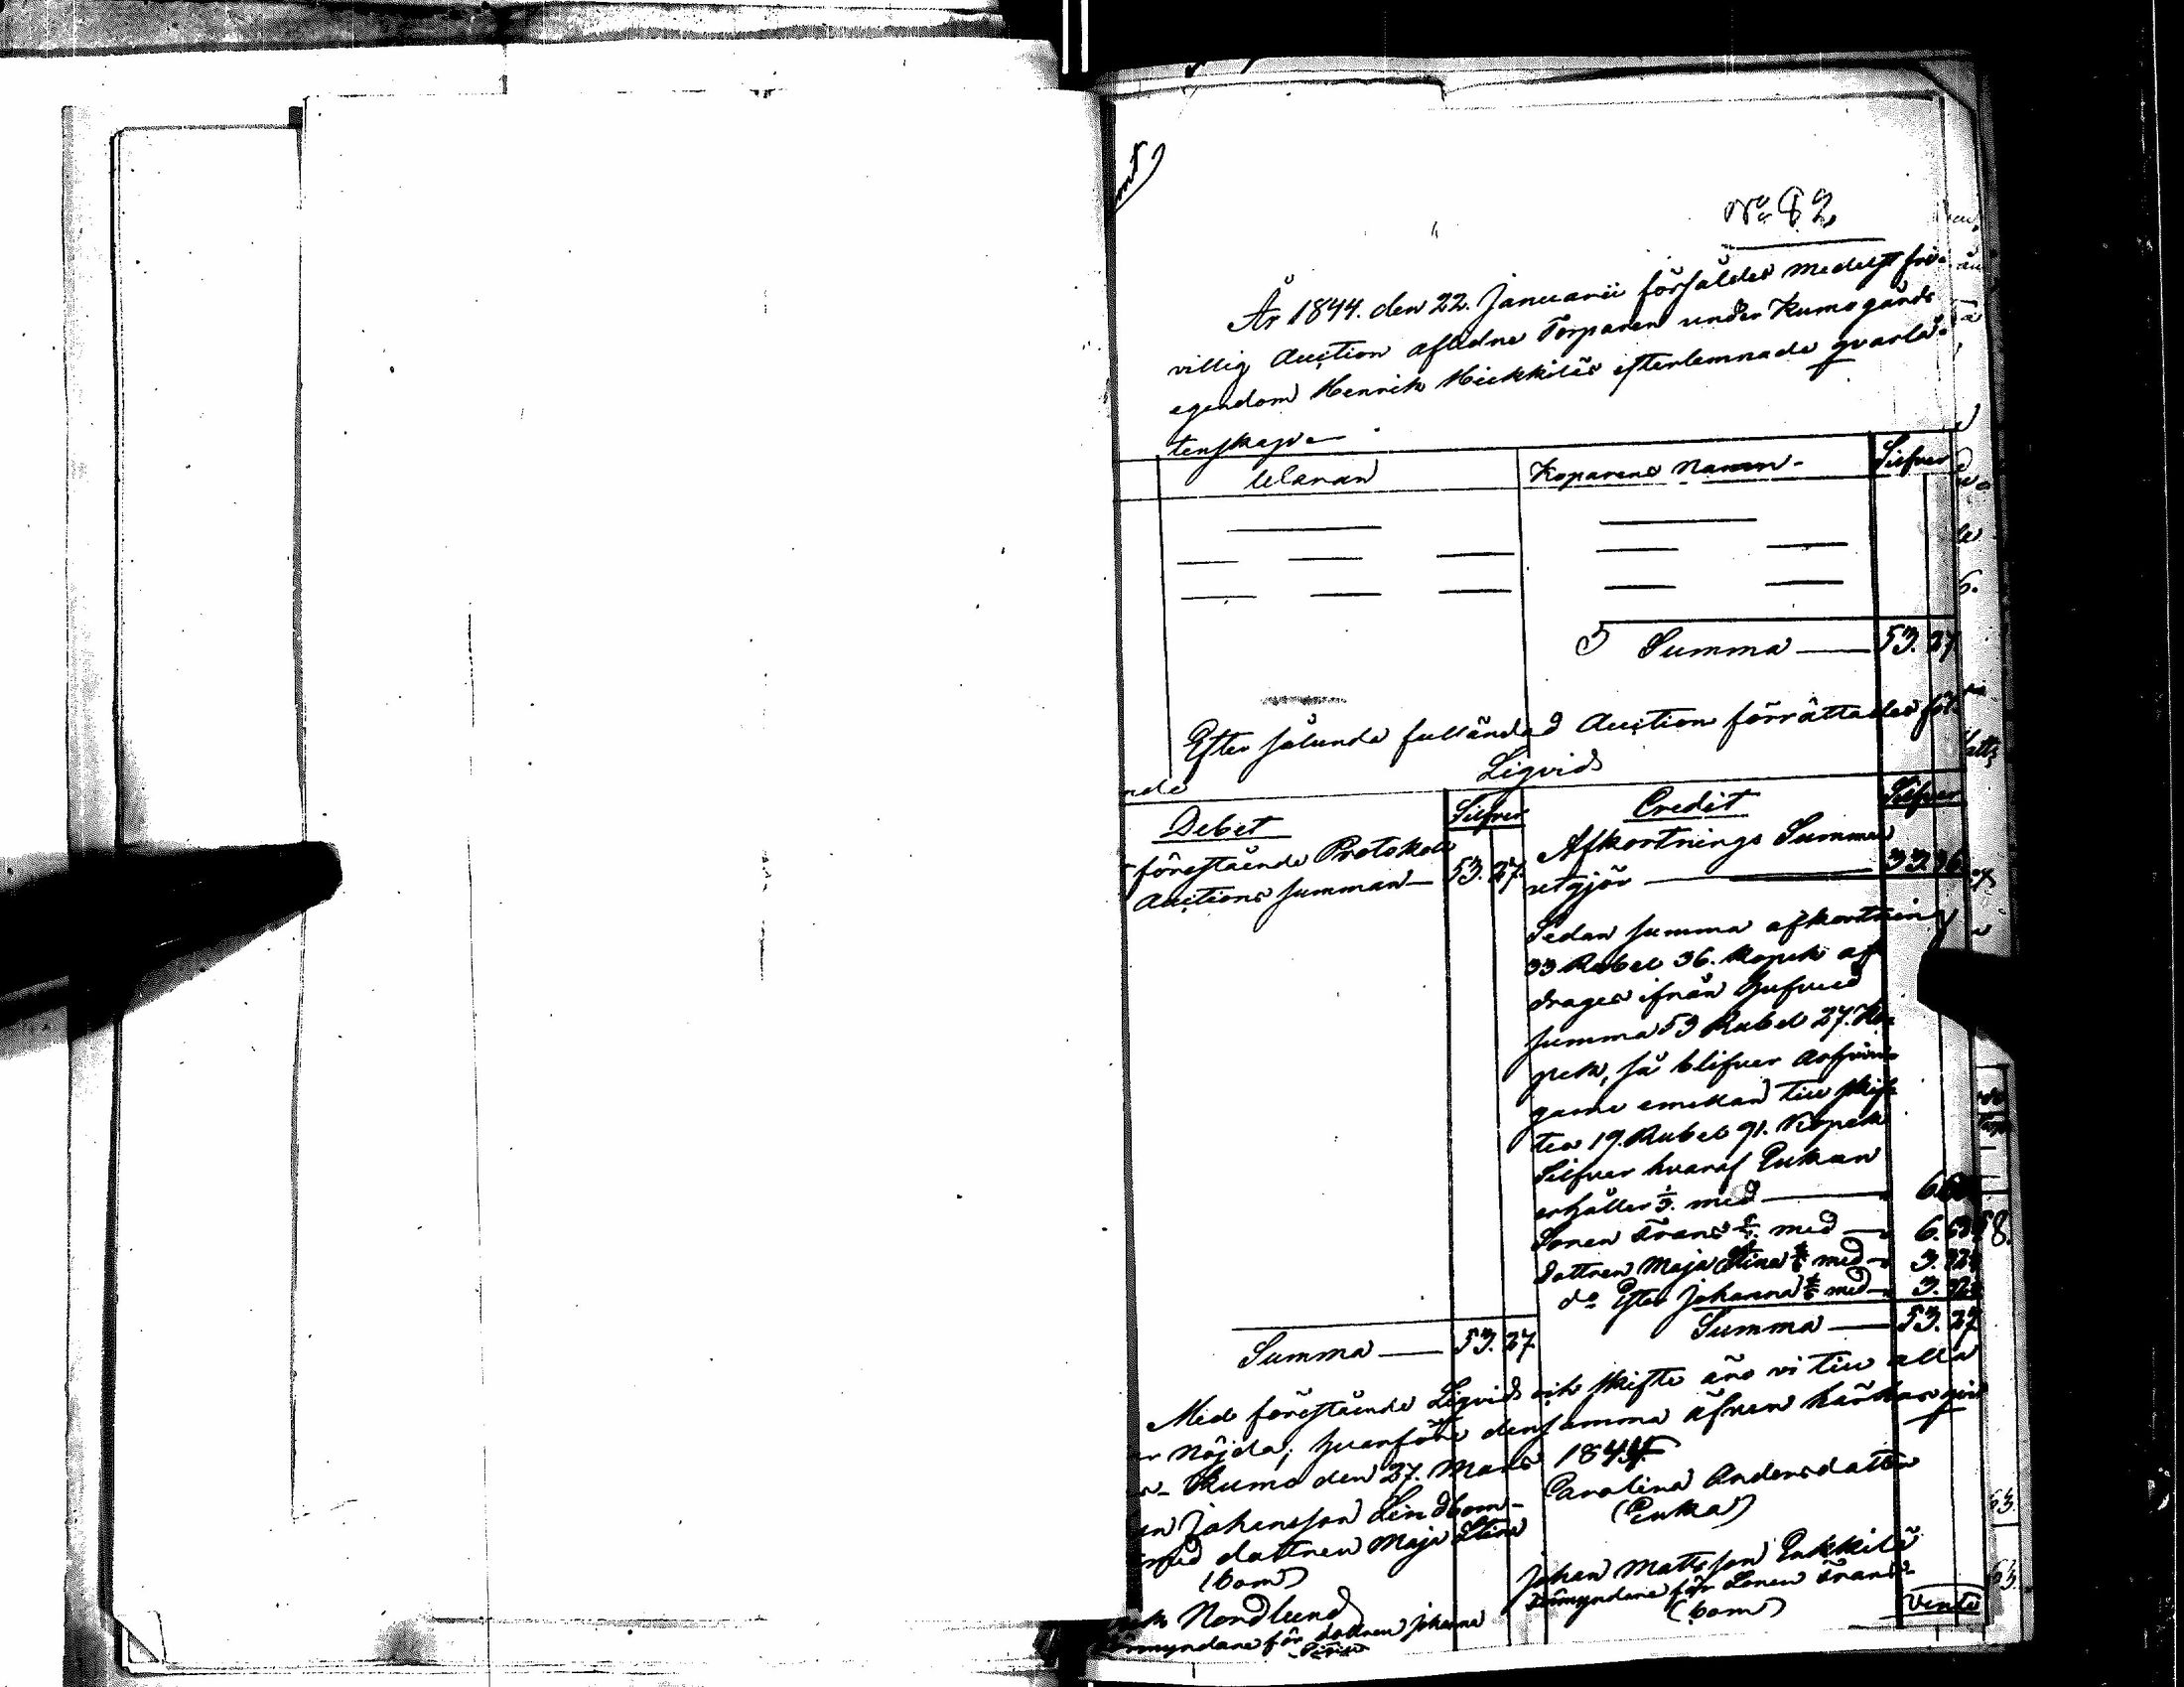 No 82
År 1844. den 22. Januarii försåldes medelst fri-
villig Auction aflidne Torparen under Kumogårds
egendom Henrik Heikkiläs efterlemnade qvarlå-
tenskap
Waran Köparens Namn Silfver
S Summa 53. 27.
Efter sålunda fulländad Auction förrättades föl-
nde Liqvid
Debet Silfver
förestående Protokoll
Auctions summan 53. 27.
Summa 53. 27
Credit Silfver
Afkortnings Summan
utgjör 33. 36
Sedan summa afkortning
33 Rubel 36. Kopek af
drages ifrån hufvud
summa 53 Rubel 27. Ko
pek, så blifver arfvin-
garne emellan till skif-
tes 19. Rubel 91. Kopek
Silfver hvaraf Enkan
erhåller 1/3. med
Sonen Frans med 6.
dottren Maja Stina med 3.
do Johanna med 3.
Summa 53. 27
Med förestående Liqvid och skifte äro vi till alla
nöjda; hvarföre densamma äfven härhos
Kumo den 27. Mars 1844
Johansson Lindbom
dottren Maja Stina
(bom)
Carolina Andersdotter
(Enka)
Nordlund
myndare för dottren Johanna
Johan Mattsson Erkkilä
Förmyndare för Sonen Frans
(bom)
Vende